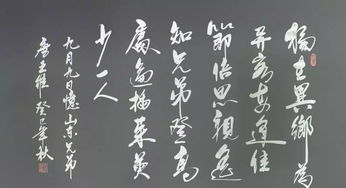 獨在異鄉為
異客每逢佳
節倍思親遙
知兄弟登高
處遍插茱萸
少一人
九月九日憶山東兄弟
唐王維 癸巳年秋